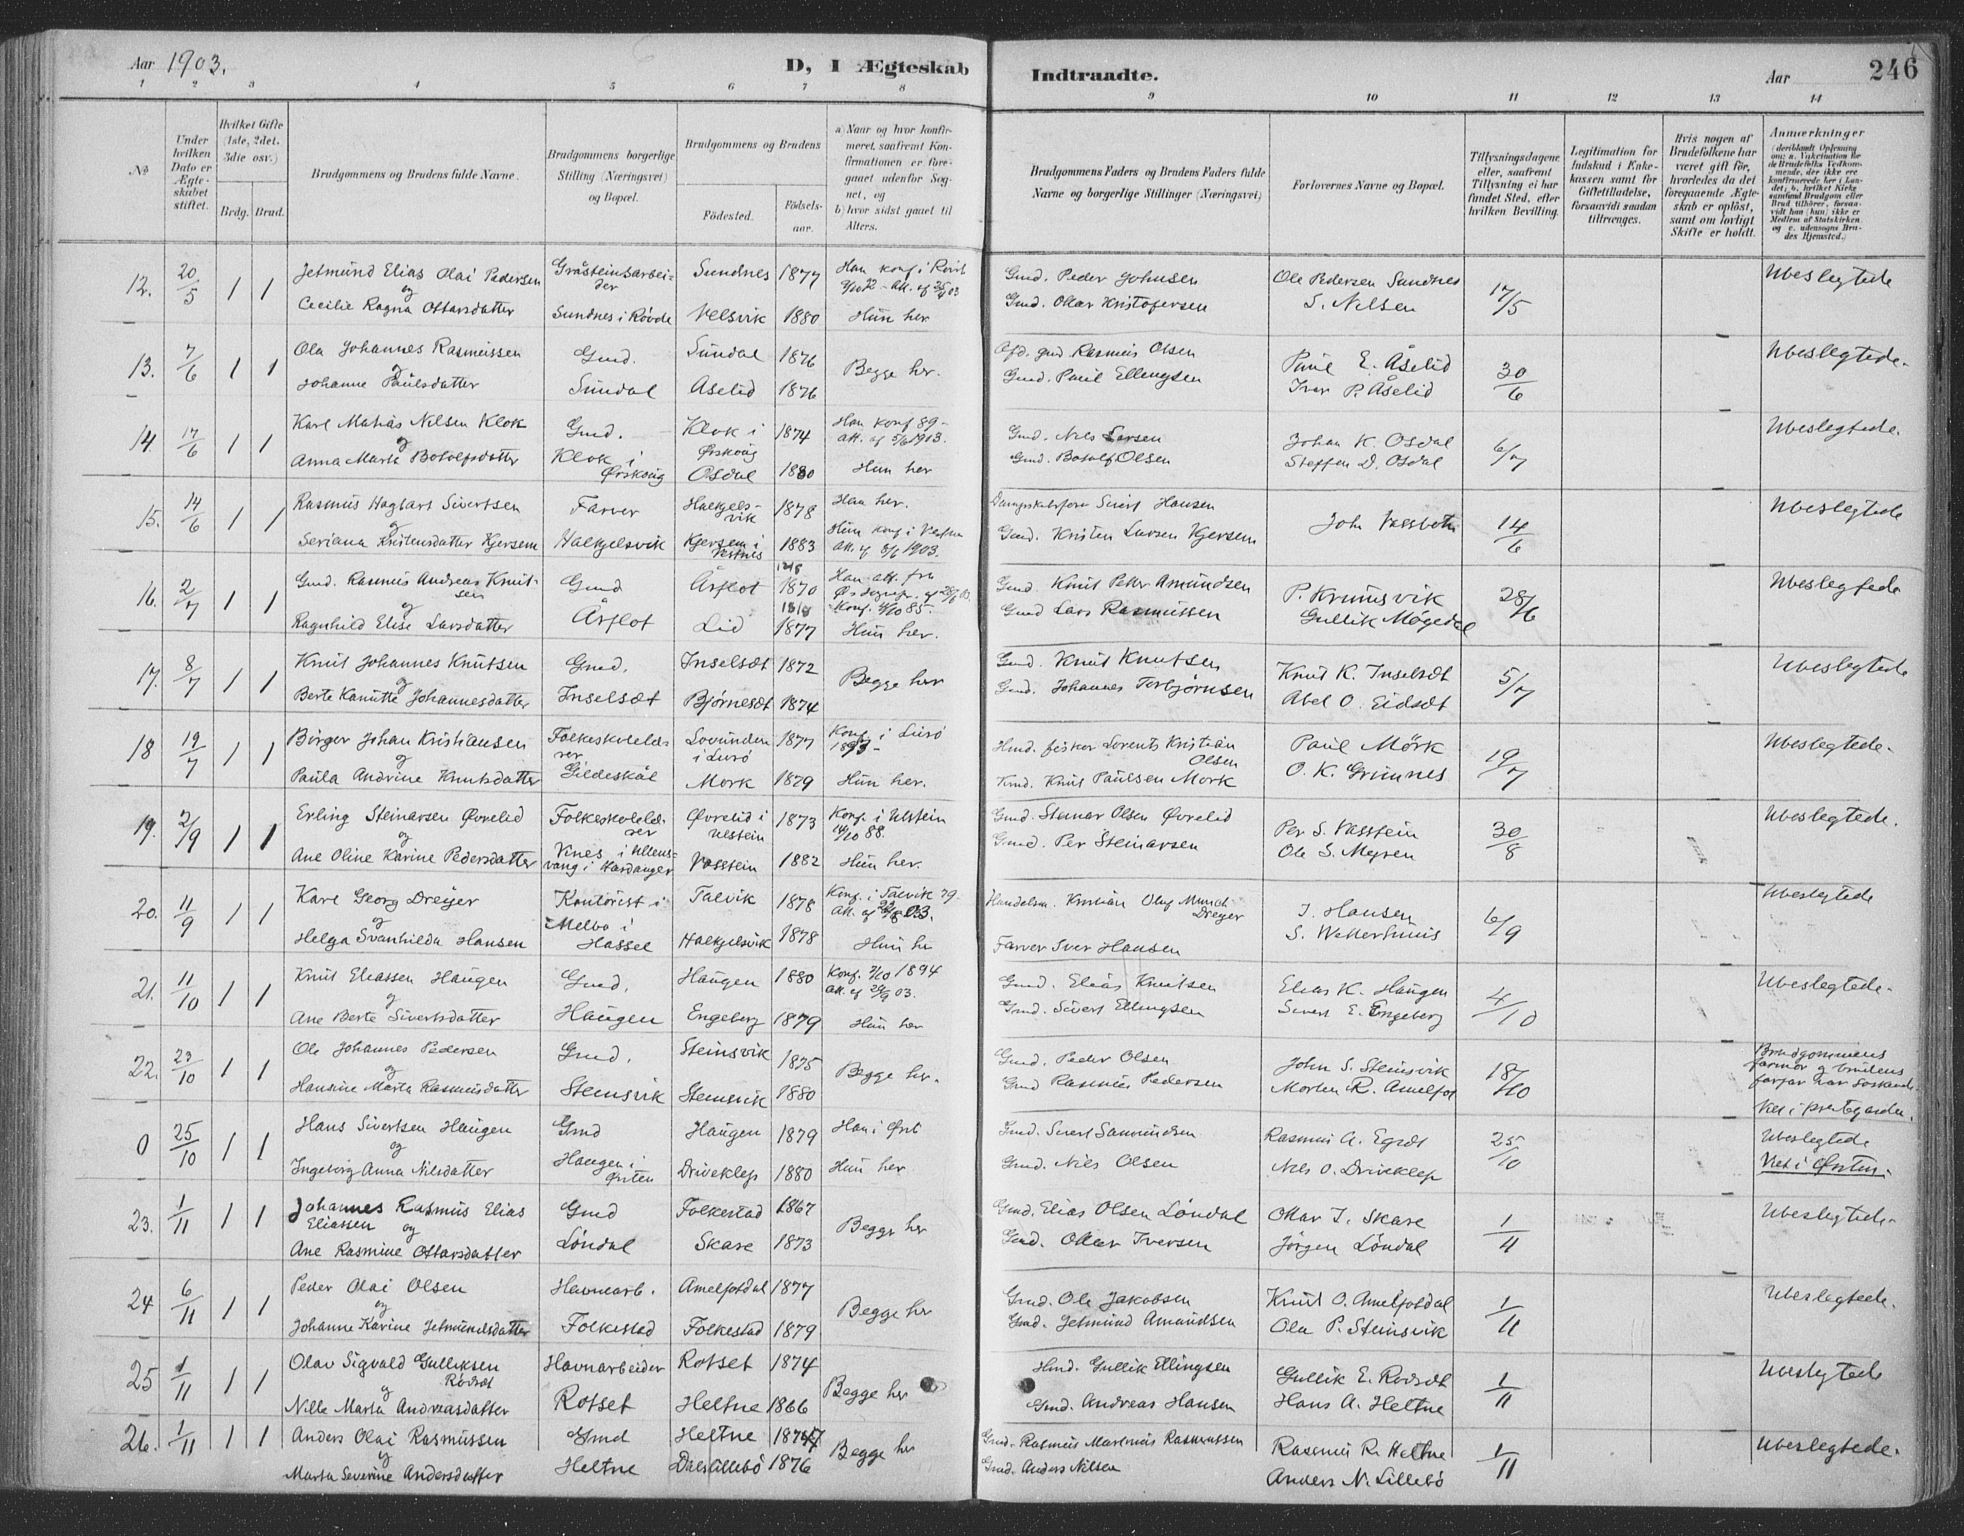 Aar 1903.
D, I Ægteskab Indtraadte.
Aar
246
1 2 3 4 5 6 7 8 9 10 11 12 13 14
No
Under hvilken Dato er Ægteskabet stiftet.
Hvilket Gifte (1ste, 2det. 3die osv.)
Brdg. Brud.
Brudgommens og Brudens fulde Navne.
Brudgommens borgerlige Stilling (Næringsvei) og Bopæl.
Brudgommens og Brudens
Fødested.
Fødselsaar.
a) Naar og hvor konfirmeret, saafremt Konfirmationen er foregaaet udenfor Sognet, og
b) hvor sidst gaaet til Alters.
Brudgommens Faders og Brudens Faders fulde Navne og borgerlige Stillinger (Næringsvei)
Forlovernes Navne og Bopæl.
Tillysningsdagene eller, saafremt Tillysning ei har fundet Sted, efter hvilken Bevilling.
Legitimation for Indskud i Enkekassen samt for Giftetilladelse, forsaavidt saadan tiltrænges.
Hvis nogen af Brudefolkene har været gift før, hvorledes da det foregaaende Ægteskab er opløst, samt om lovligt Skifte er holdt.
Anmærkninger
12. 20/5 1 1 Jetmund Elias Olai Pedersen Gråsteinsarbeider Sundnes 1877 Gmd. Peder Johnsen Ole Pedersen Sundnes 17/5 Ubeslegtede
og
Cecilie Ragna Ottarsdatter Sundnes i Røvde Velsvik 1880 Hun her Gmd. Ottar Kristofersen S. Nilsen
13. 7/6 1 1 Ola Johannes Rasmussen Gmd. Sundal 1876 Begge her. Rasmus Olsen Paul E. Åselid 30/6 Ubeslegtede.
og
Johanne Paulsdatter Sundal Aselid 1876 Gmd. Paul Ellingsen Iver P. Åselid
14. 17/6 1 1 Karl Matias Nilsen Klok Gmd. Klok i Ørskoug 1874 Han konf 89 - att. af 5/6 1903. Gmd. Nils Larsen Johan K. Osdal 6/7 Ubeslegtede.
og
Anna Marta Botolfsdatter Klok i Ørskoug Osdal 1880 Hun her Gmd. Botolf Olsen Steffen D. Osdal
15. 14/6 1 1 Rasmus Hagbart Sivertsen Farver Halkjelsvik 1878 Han her. Sivert Hansen John Vassbotn 14/6 Ubeslegtede
og
Seriana Kristensdatter Kjersem Halkjelsvik Kjersem i Vestnes 1883 Hun konf i Vestnes att. af 1903. Gmd. Kristen Larsen Kjersem
16. 2/7 1 1 Gmd. Rasmus Andreas Knutsen Gmd Årflot 1870 Han att. fra Konf. 4/10 85. Gmd. Knut Petter Amundsen P. Krumsvik 28/6 Ubeslegtede
og
Ragnhild Elise Larsdatter Årflot Lid 1877 Hun her. Gmd Lars Rasmussen Gullik Møgedal
17 8/7 1 1 Knut Johannes Knutsen Gmd. Inselsæt 1872 Begge her Gmd. Knut Knutsen Knut K. Inselsæt 5/7 Ubeslegtede
og
Berte Kanutte Johannesdatter Inselsæt Bjørnesæt 1874 Gmd. Johannes Torbjørnsen Abel O. Eidsæt
18 19/7 1 1 Birger Johan Kristiansen Folkeskolelærer Lovunden i Lurø 1877 Konf i Lurø Hmd. fisker Lorents Kristian Olsen Paul Mörk 19/7 Ubeslegtede.
og
Paula Andrine Knutsdatter Gildeskål Mork 1879 Hun her. Gmd. Knut Paulsen Mork O. K. Grimnes
19. 2/9 1 1 Erling Steinarsen Øvrelid Folkeskolelærer Øvrelid i Ulstein 1873 Konf. i Ulstein 88. Gmd. Steinar Olsen Øvrelid Per S. Vasstein 30/8 Ubeslegtede.
og
Ane Oline Karine Pedersdatter Vines i Ullensvang i Hardanger Vasstein 1882 Hun her. Gmd. Per Steinarsen Ole S. Myren
20. 11/9 1 1 Karl Georg Dreyer Kontorist i Talvik 1878 Konf. i Talvik Handelsm. Kristian Oluf Munch Dreyer J. Hansen 6/9 Ubeslegtede
og
Helga Svanhilda Hansen Melbo i Hassel Halkjelsvik 1878 Hun her Farver Iver Hansen S. Welterhuus
21. 11/10 1 1 Knut Eliassen Haugen Gmd. Haugen 1880 Konf. 7/10 1894 att. af 03. Gmd. Elias Knutsen Elias K. Haugen 4/10 Ubeslegtede.
og
Ane Berte Sivertsdatter Haugen Engeberg 1879 Hun her Gmd. Sivert Ellingsen Sivert E. Engeberg
22. 23/10 1 1 Ole Johannes Pedersen Gmd. Steinsvik 1875 Begge her. Gmd. Peder Olsen John S. Steinsvik 18/10 Brudgommens farmor og brudens farfar har søskende.
og
Hansine Marta Rasmusdatter Steinsvik Steinsvik 1880 Gmd Rasmus Pedersen Morten R. Amelfot Viet i prestegarden.
0 25/10 1 1 Hans Sivertsen Haugen Gmd Haugen 1879 Han i Ørst Gmd. Sivert Samundsen Rasmus A. Egset 25/10 Ubeslegtede
og
Ingeborg Anna Nilsdatter Haugen i Ørsten Driveklep 1880 Hun her Gmd. Nils Olsen Nils O. Driveklep Viet i Ørsten.
23. 1/11 1 1 Johannes Rasmus Elias Eliassen Gmd Folkestad 1867 Begge her Gmd. Elias Olsen Löndal Ottar I. Skare 1/11 Ubeslegtede.
og
Ane Rasmine Ottarsdatter Löndal Skare 1873 Gmd. Ottar Iversen Jörgen Löndal
24 6/11 1 1 Peder Olai Olsen Havnearb. Amelfotdal 1877 Begge her Gmd. Ole Jakobsen Knut O. Amelfotdal 1/11 Ubeslegtede.
og
Johanne Karine Jetmundsdatter Folkestad Folkestad 1879 Gmd. Jetmund Amundsen Ola P. Steinsvik
25 1/11 1 1 Olav Sigvald Gulliksen Rodset Havnarbeider Rotset 1874 Begge her Hmd. Gullik Ellingsen Gullik E. Rodsæt 1/11 Ubeslegtede
og
Nille Marta Andreasdatter Rotset Heltne 1866 Gmd. Andreas Hansen Hans A. Heltne
26. 1/11 1 1 Anders Olai Rasmussen Gmd Heltne Begge her Gmd. Rasmus Martinus Rasmussen Rasmus R. Heltne 1/11 Ubeslegtede.
og
Marta Severine Andersdatter Heltne Dals Lillebø 1876 Gmd. Anders Nilsen Anders N. Lillebö